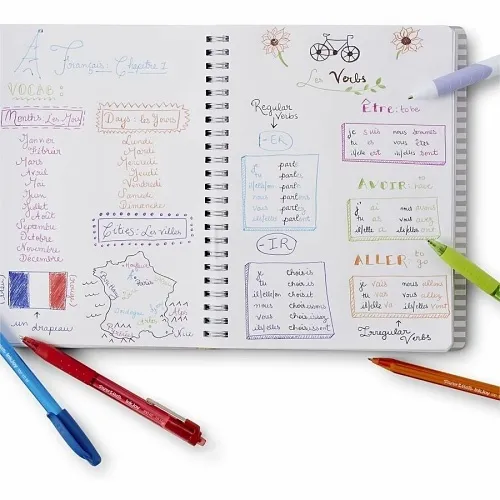 Français: Chapitre 1
VOCAB:
Months: Les Mois
Janvier
Février
Mars
Avril
Mai
Juin
Juillet
Août
Septembre
Octobre
Novembre
Décembre
un drapeau
Days: les Jours
Lundi
Mardi
Mercredi
Jeudi
Vendredi
Samedi
Dimanche
Cities: Les Villes
Paris
Alps
Nice
Les Verbs
Regular Verbs
-ER
je parle
tu parles
il/elle/on parle
nous parlons
vous parlez
ils/elles parlent
-IR
je choisis
tu choisis
il/elle/on choisit
nous choisissons
vous choisissez
ils/elles choisissent
Être: to be
je suis nous sommes
tu es vous êtes
il/elle est ils/elles sont
AVOIR: to have
j' ai nous avons
tu as vous avez
il/elle a ils/elles ont
ALLER to go
je vais nous allons
tu vas vous allez
il/elle va ils/elles vont
Irregular Verbs